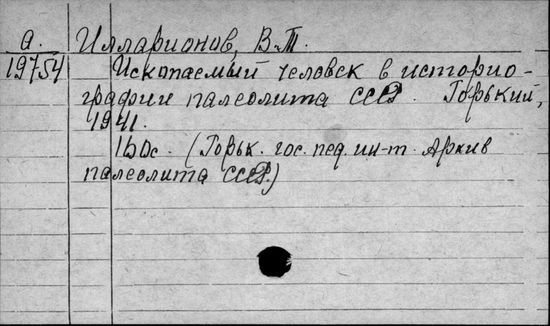 а. Илларионов, В.Т.
19754 Ископаемый человек в историо-
графии палеолита СССР. Горький,
1941.
160с. (Горьк. гос. пед. ин-т. Архив
палеолита СССР.)